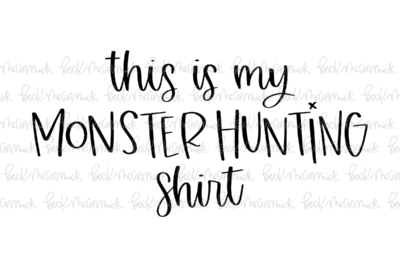 this is my
MONSTER HUNTING
shirt